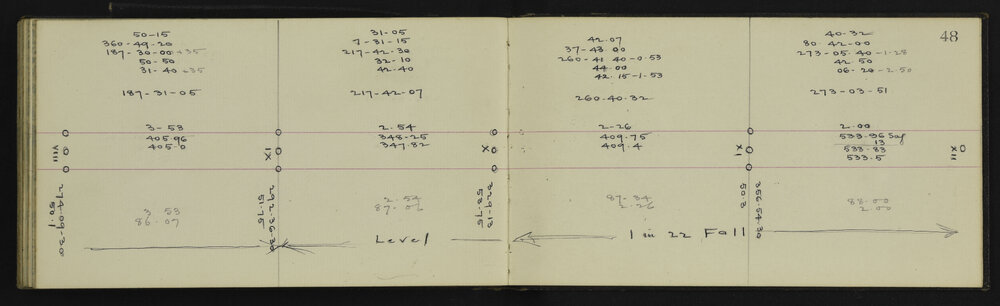 50-15
360-49-20
187-30-00 +35
50-50
31-40 +35
187-31-05
3-53
405.96
405.0
VIII
274-09-30
50.1
3 53
86-07
31-05
7-31-15
217-42-30
32-10
42-40
217-42-07
2.54
348-25
347.82
IX
292-36-30
51.75
2.54
87-06
Level
42.07
37-43 00
260-41 40-0.53
44.00
42.15-1-53
260-40.32
2-26
409.75
409.4
X
329-13
58.75
87-34
2-26
1 in 22 Fall
48
40-32
80.42-00
273-05.40-1-28
42.50
06-20-2.50
273-03-51
2.00
533.96 Sag
13
533-83
533.5
XI
356-54-30
50.3
88-00
2.00
XII